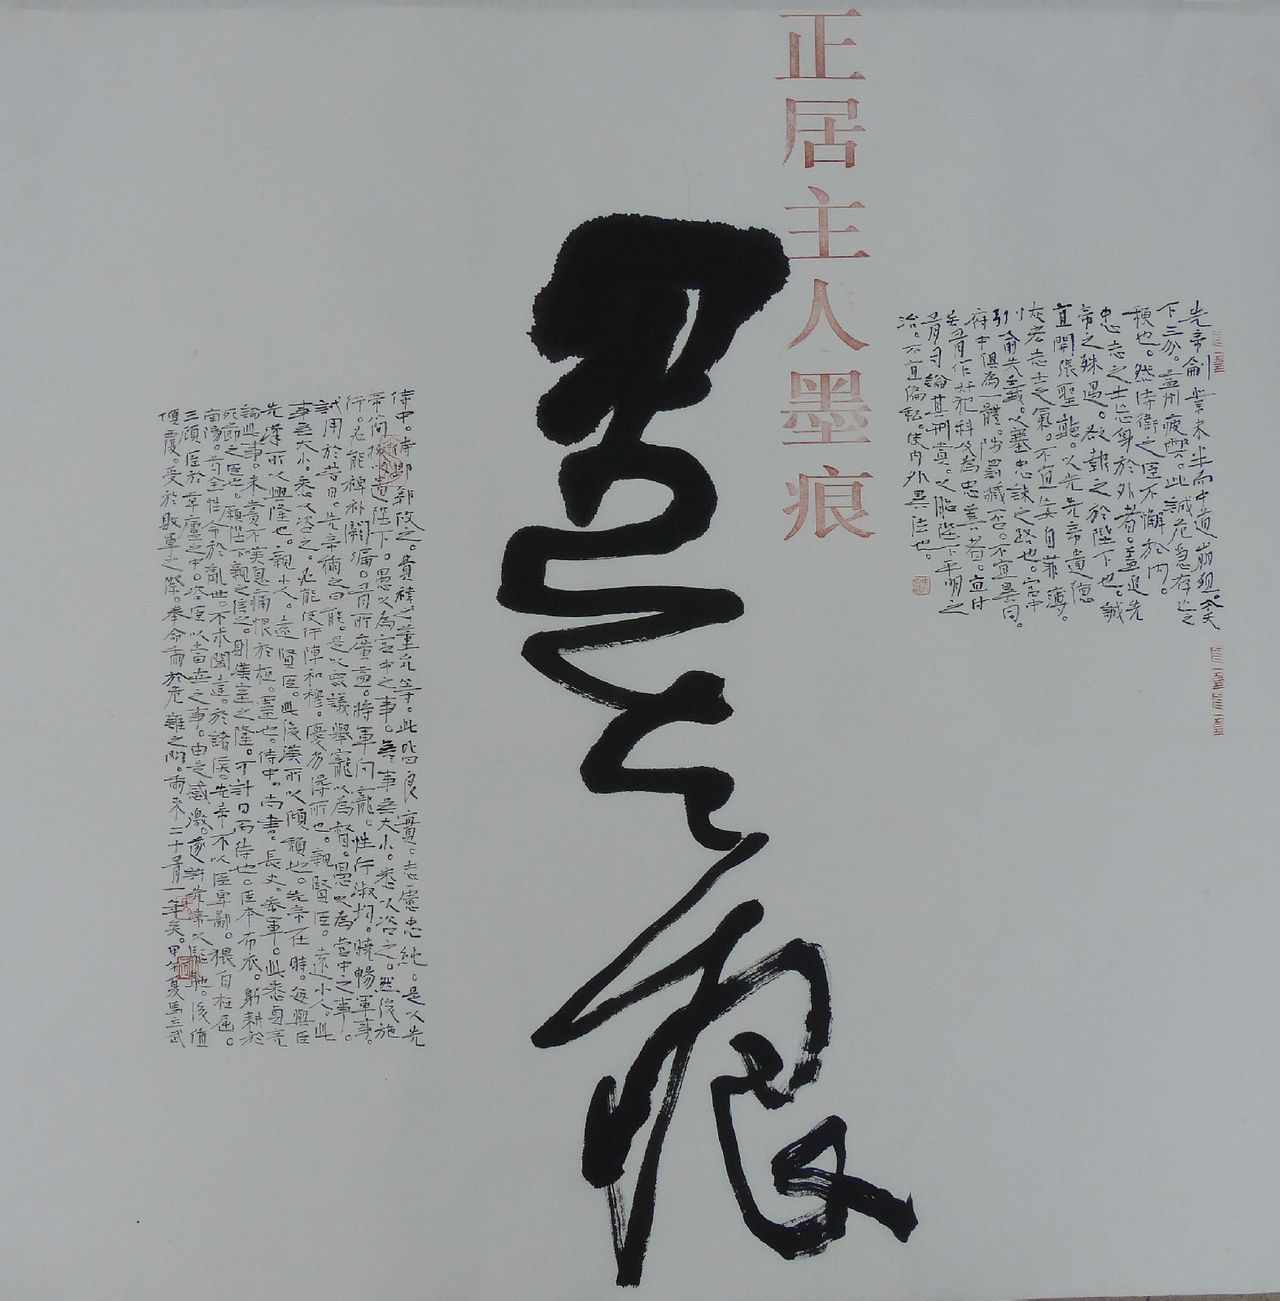 先帝創業未半而中道崩殂。今天
下三分。益州疲弊。此誠危急存亡之
穐也。然侍衛之臣不懈於內。
忠志之士忘身於外者。蓋追先
帝之殊遇。欲報之於陛下也。誠
宜開張聖聽。以光先帝遺德
恢宏志士之氣。不宜妄自菲薄。
引喻失義以塞忠諫之路也。宮中
府中俱為一體陟罰臧否。不宜異同。
若有作奸犯科及為忠善者。宜付
有司論其刑賞。以昭陛下平明之
治。不宜偏私。使內外異法也。
正居主人墨痕
墨痕
侍中。侍郎郭攸之。費禕。董允等。此皆良實。志慮忠純。是以先
帝簡拔以遺陛下。愚以為宮中之事。無事無大小。悉以咨之。然後施
行。必能裨補闕漏。有所廣益。將軍向寵。性行淑均。曉暢軍事。
試用於昔日。先帝稱之曰能。是以眾議舉寵以為督。愚以為營中之事。
事無大小。悉以咨之。必能使行陣和穆。優劣得所也。親賢臣。遠小人。此
先漢所以興隆也。親小人。遠賢臣。此後漢所以傾頹也。先帝在時。每與臣
論此事。未嘗不歎息痛恨於桓。靈也。侍中。尚書。長史。參軍。此悉貞亮
死節之臣也。願陛下親之信之。則漢室之隆。可計日而待也。臣本布衣。躬耕於
南陽。苟全性命於亂世。不求聞達。於諸侯。先帝不以臣卑鄙。猥自枉屈。
三顧臣於草廬之中。咨臣以當世之事。由是感激。遂許先帝以驅馳。後值
傾覆。受於敗軍之際。奉命而於危難之間。爾來二十有一年矣。甲午夏馬立武